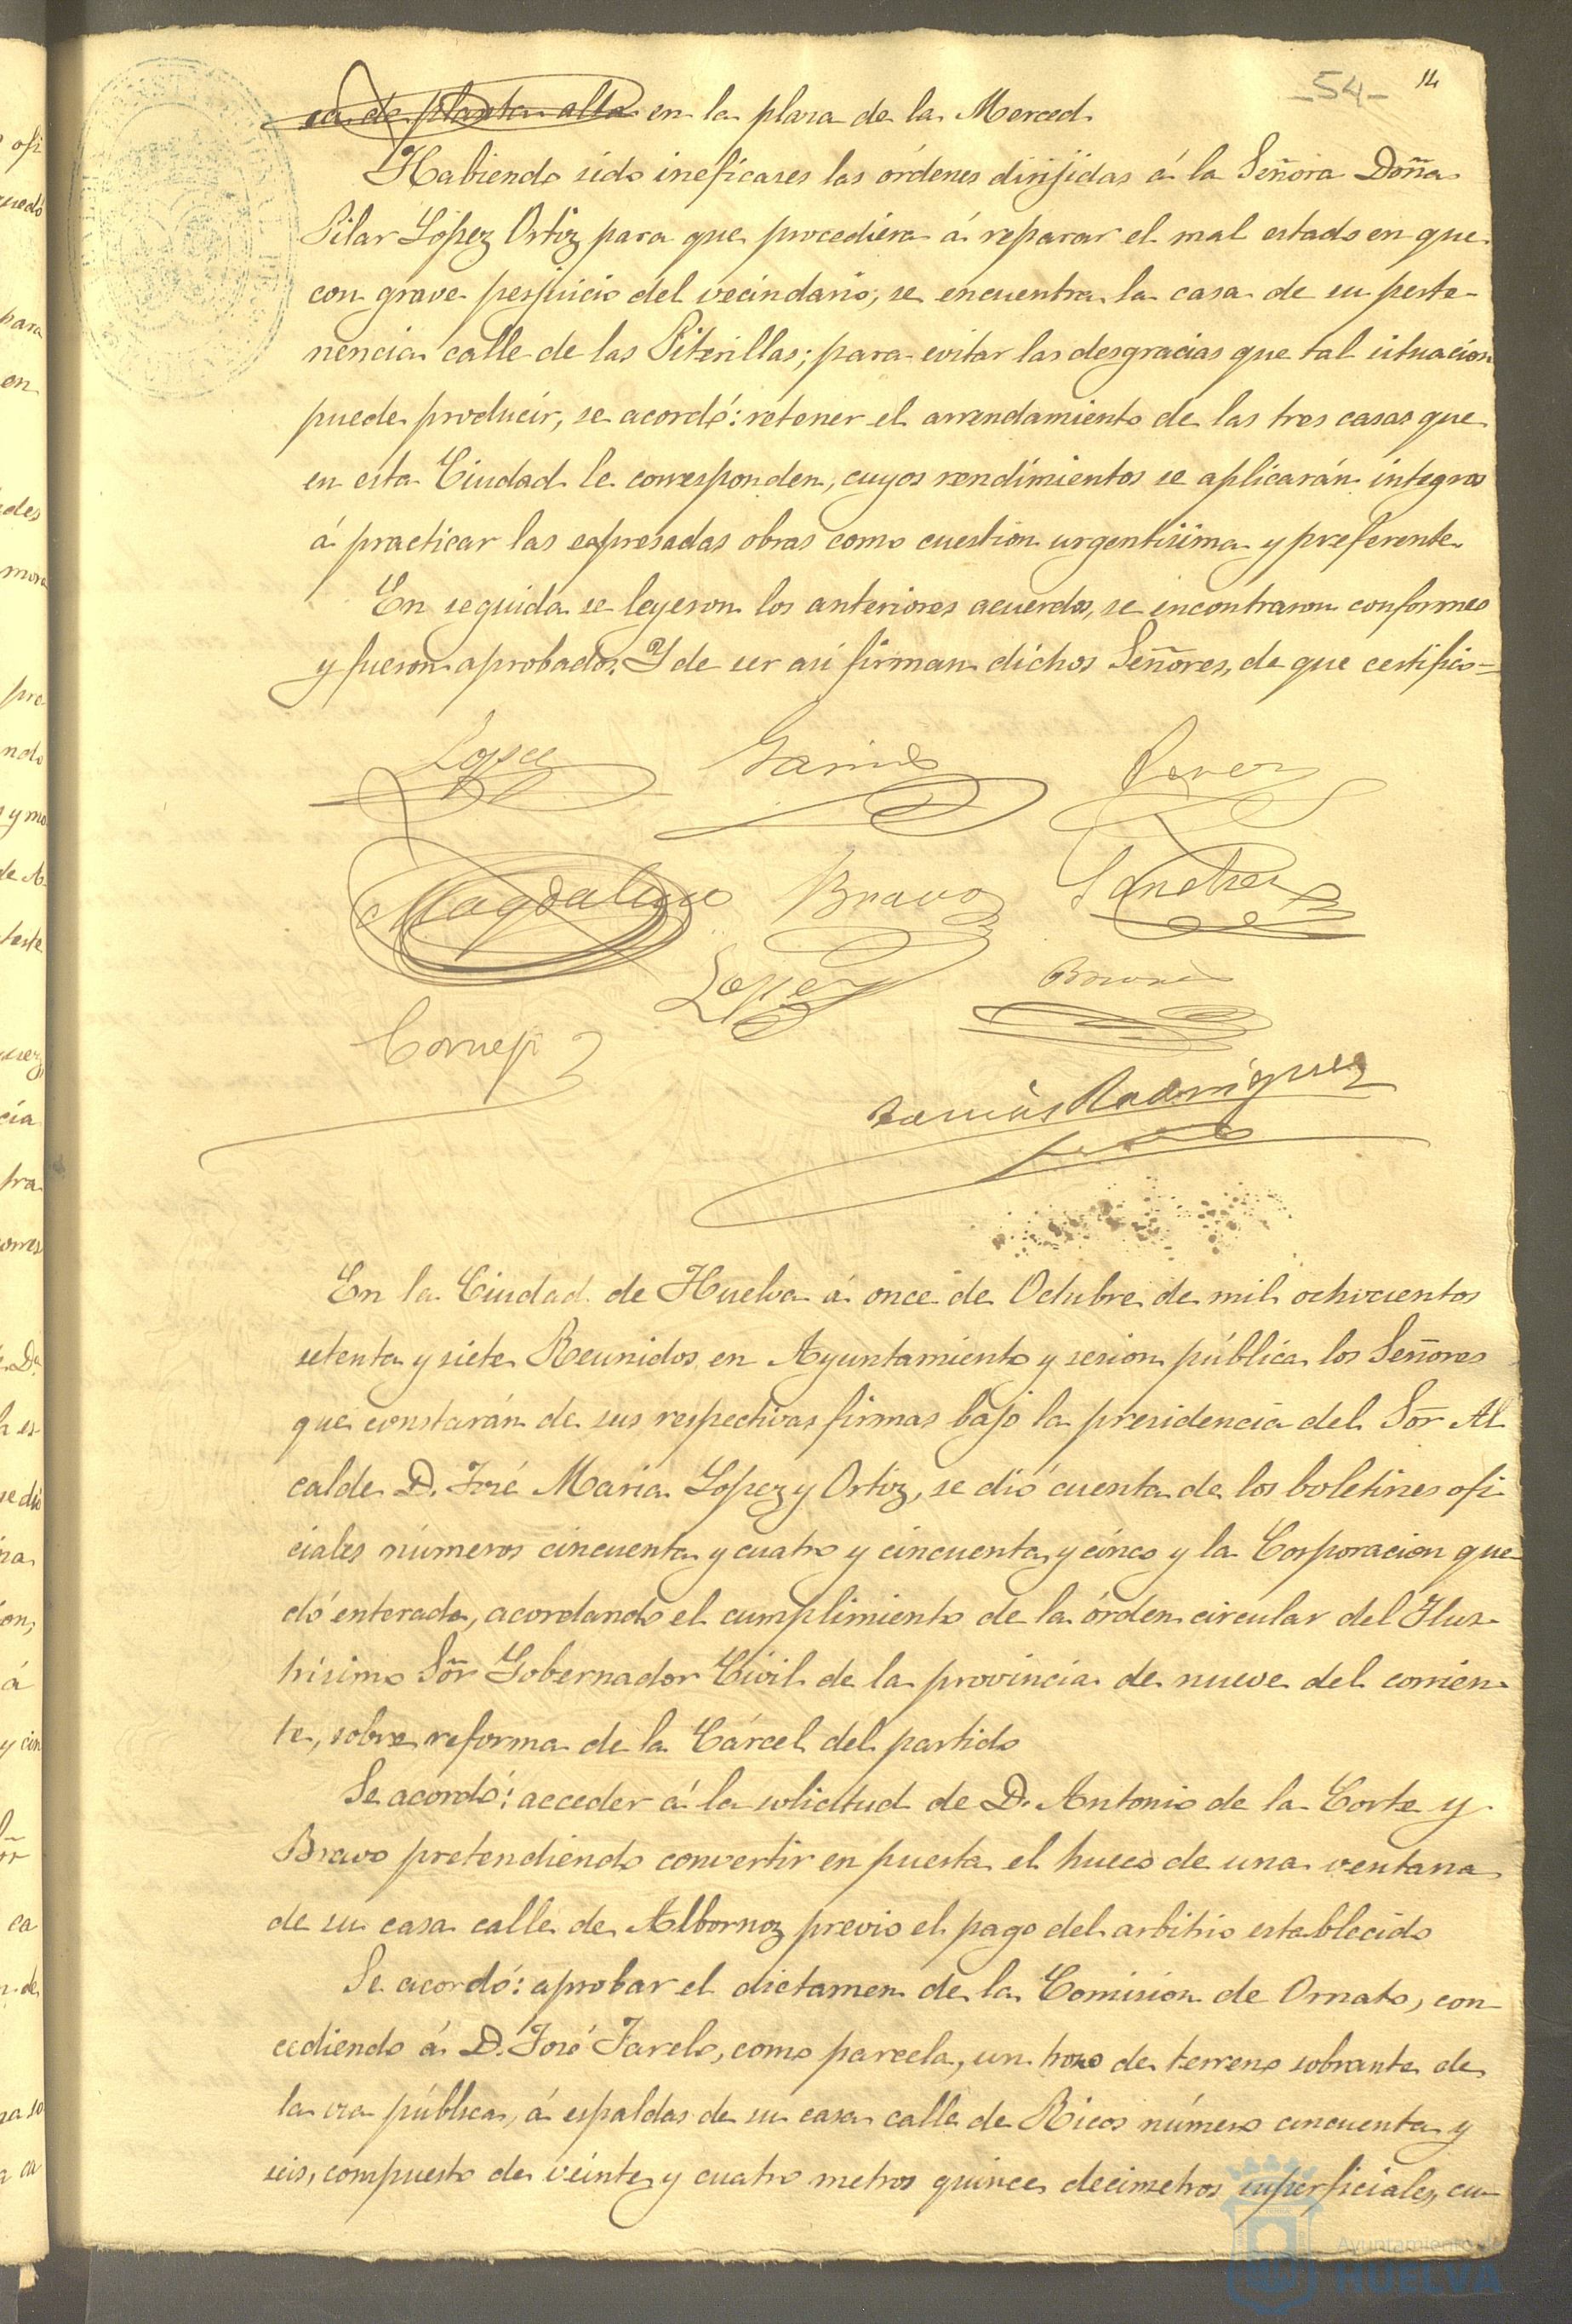 -54- 14
sa de planta alta en la plaza de la Merced.
Habiendo sido ineficases las órdenes dirijidas á la Señora Doña
Pilar López Ortiz para que procediera á reparar el mal estado en que
con grave perjuicio del vecindario, se encuentra la casa de su perte-
nencia calle de las Piterillas; para evitar las desgracias que tal situacion
puede producir, se acordó: retener el arrendamiento de las tres casas que
en esta Ciudad le corresponden, cuyos rendimientos se aplicarán integros
á practicar las espresadas obras como cuestion urgentisima y preferente
En seguida se leyeron los anteriores acuerdos, se encontraron conformes
y fueron aprobados. Y de ser asi firman dichos Señores, de que certifico=
Lopez Garrido Perez
Magdaleno Bravo Sanchez
Lopez
Cornejo
Tomás Rodriguez
En la Ciudad de Huelva á once de Octubre de mil ochocientos
setenta y siete Reunidos en Ayuntamiento y sesion pública los Señores
que constarán de sus respectivas firmas bajo la presidencia del Sõr Al
calde D. José Maria Lopez y Ortiz, se dió cuenta de los boletines ofi-
ciales números cincuenta y cuatro y cincuenta y cinco y la Corporacion que-
dó enterada, acordando el cumplimiento de la órden circular del Ilus-
trisimo Sõr Gobernador Civil de la provincia de nueve del corrien-
te, sobre reforma de la Cárcel del partido
Se acordó: acceder á la solicitud de D. Antonio de la Corte y
Bravo pretendiendo convertir en puerta el hueco de una ventana
de su casa calle de Albornoz previo el pago del arbitrio establecido
Se acordó: aprobar el dictamen de la Comision de Ornato, con-
cediendo á D. José Farelo, como parcela, un trozo de terreno sobrante de
la via pública, á espaldas de su casa calle de Ricos número cincuenta y
seis, compuesto de veinte y cuatro metros quince decimetros superficiales, cu-
Ayuntamiento de
HUELVA